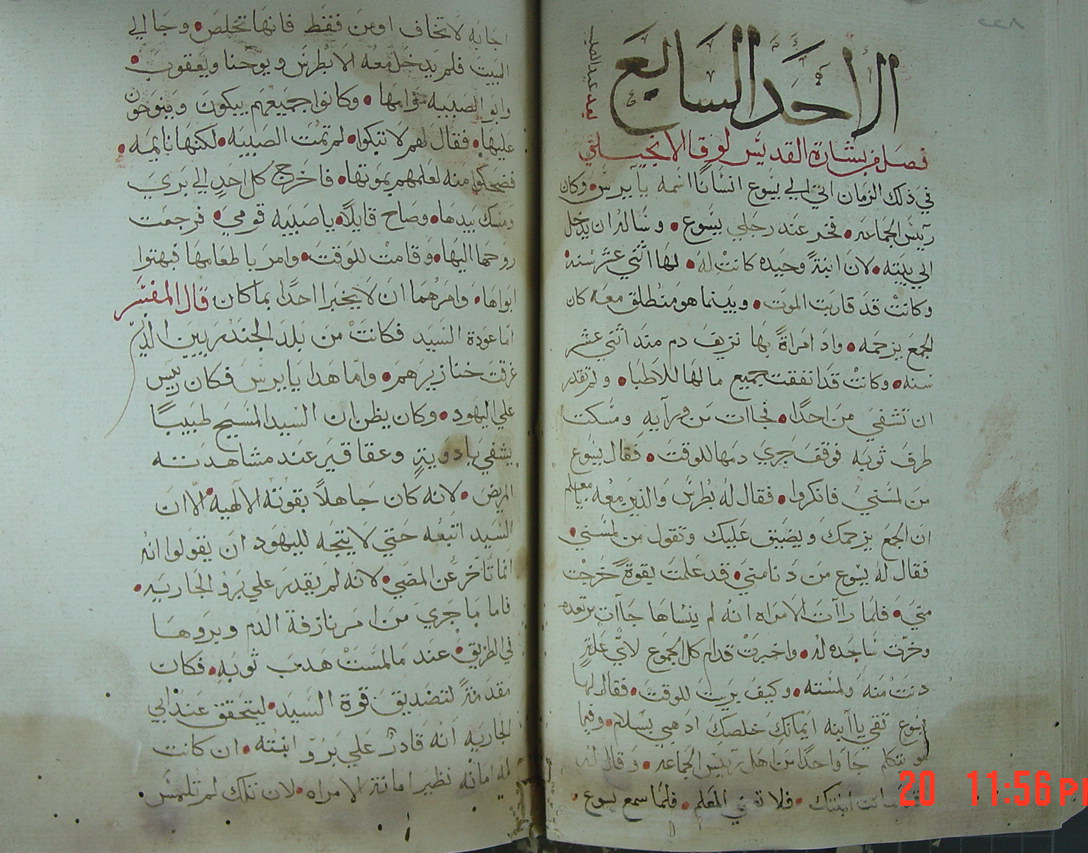 الاحد السابع
بعد عيد الصليب
فصل من بشارة القديس لوقا الانجيلي
في ذلك الزمان اتي الي يسوع انسانًا اسمه يآيرس • وكان
رييس الجماعه • فخر عند رجلي يسوع • وساله ان يدخل
الي بيته • لان ابنة وحيده كانت له • لها اثني عشر سنه
وكانت قد قاربت الموت • وبينما هو منطلق معه كان
الجمع يزحمه • واذ امراة بها نزيف دم منذ اثني عشر
سنه • وكانت قد انفقت جميع ما لها للاطبا • ولم تقدر
ان تشفي من احدًا • فجاات من ورآيه ومسكت
طرف ثوبه فوقف جري دمها للوقت • فقال يسوع
من لمسني فانكروا • فقال له بطرس والذين معه يامعلم
ان الجمع يزحمك ويضيق عليك وتقول من لمسني •
فقال له يسوع من دنا مني • قد علمت بقوة خرجت
مني • فلما راآت الامراه انه لم ينساها جاآت مرتعده
وخرت ساجده له • واخبرت قدام كل الجموع لاي علة
دنت منه ولمسته • وكيف بريت للوقت • فقال لها
يسوع ثقي ياآبنه ايمانك خلصك اذهبي بسلام • وفيما
هو يتكلم جا واحدًا من اهل رييس الجماعه • وقال له
قد ماتت ابنتك • فلا تعني المعلم • فلما سمع يسوع
20 11:56 P
اجابه لا تخاف اومن فقط فانها تخلص • وجا الي
البيت فلم يدخل معه الا بطرس ويوحنا ويعقوب •
وابوا الصبيه وامها • وكانوا جميعهم يبكون وينوحون
عليها • فقال لهم لا تبكوا • لم تمت الصبيه • لكنها نايمه •
فضحكوا منه لعلمهم بموتها • فاخرج كل احد الي بري
ومسك بيدها • وصاح قايلًا • ياصبيه قومي • فرجعت
روحها اليها • وقامت للوقت • وامر باطعامها فبهتوا
ابواها • وامرهما ان لا يخبرا احدًا بما كان قال المفسر
اما عودة السيد فكانت من بلد الجندريين الذين
غرقت خنازيرهم • واما هدا يايرس فكان رييس
علي اليهود • وكان يظن ان السيد المسيح طبيبًا
يشفي بادوية وعقاقير عند مشاهدته
المريض • لانه كان جاهلًا بقوته الالهيه الا ان
السيد اتبعه حتي لا يتجه لليهود ان يقولوا انه
انما تاخر عن المضي • لانه لم يقدر علي برو الجاريه •
فاما ما جري من امر نازفة الدم وبروها
في الطريق • عند ما لمست هدب ثوبه • فكان
مقدمةً لتصديق قوة السيد • ليتحقق عند ابي
الجاريه انه قادر علي برو ابنته • ان كانت
له امانه نظير امانة الامراه • لان تلك لم تلمس